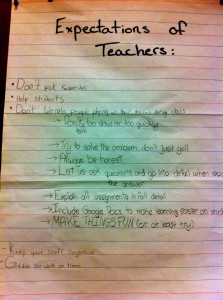 Expectations of
Teachers:
• Don't pick favorites
• Help students
• Don't tolerate people during class
→ Don't go too slow or too quickly
→ Try to solve the problem, don't just yell
→ Always be honest
→ Let us ask questions and go into detail when
the answer
→ Explain all assignments in full detail
→ Include Google Docs to make learning easier on
→ MAKE THINGS FUN (or at least try)
- Keep your stuff
- work on time